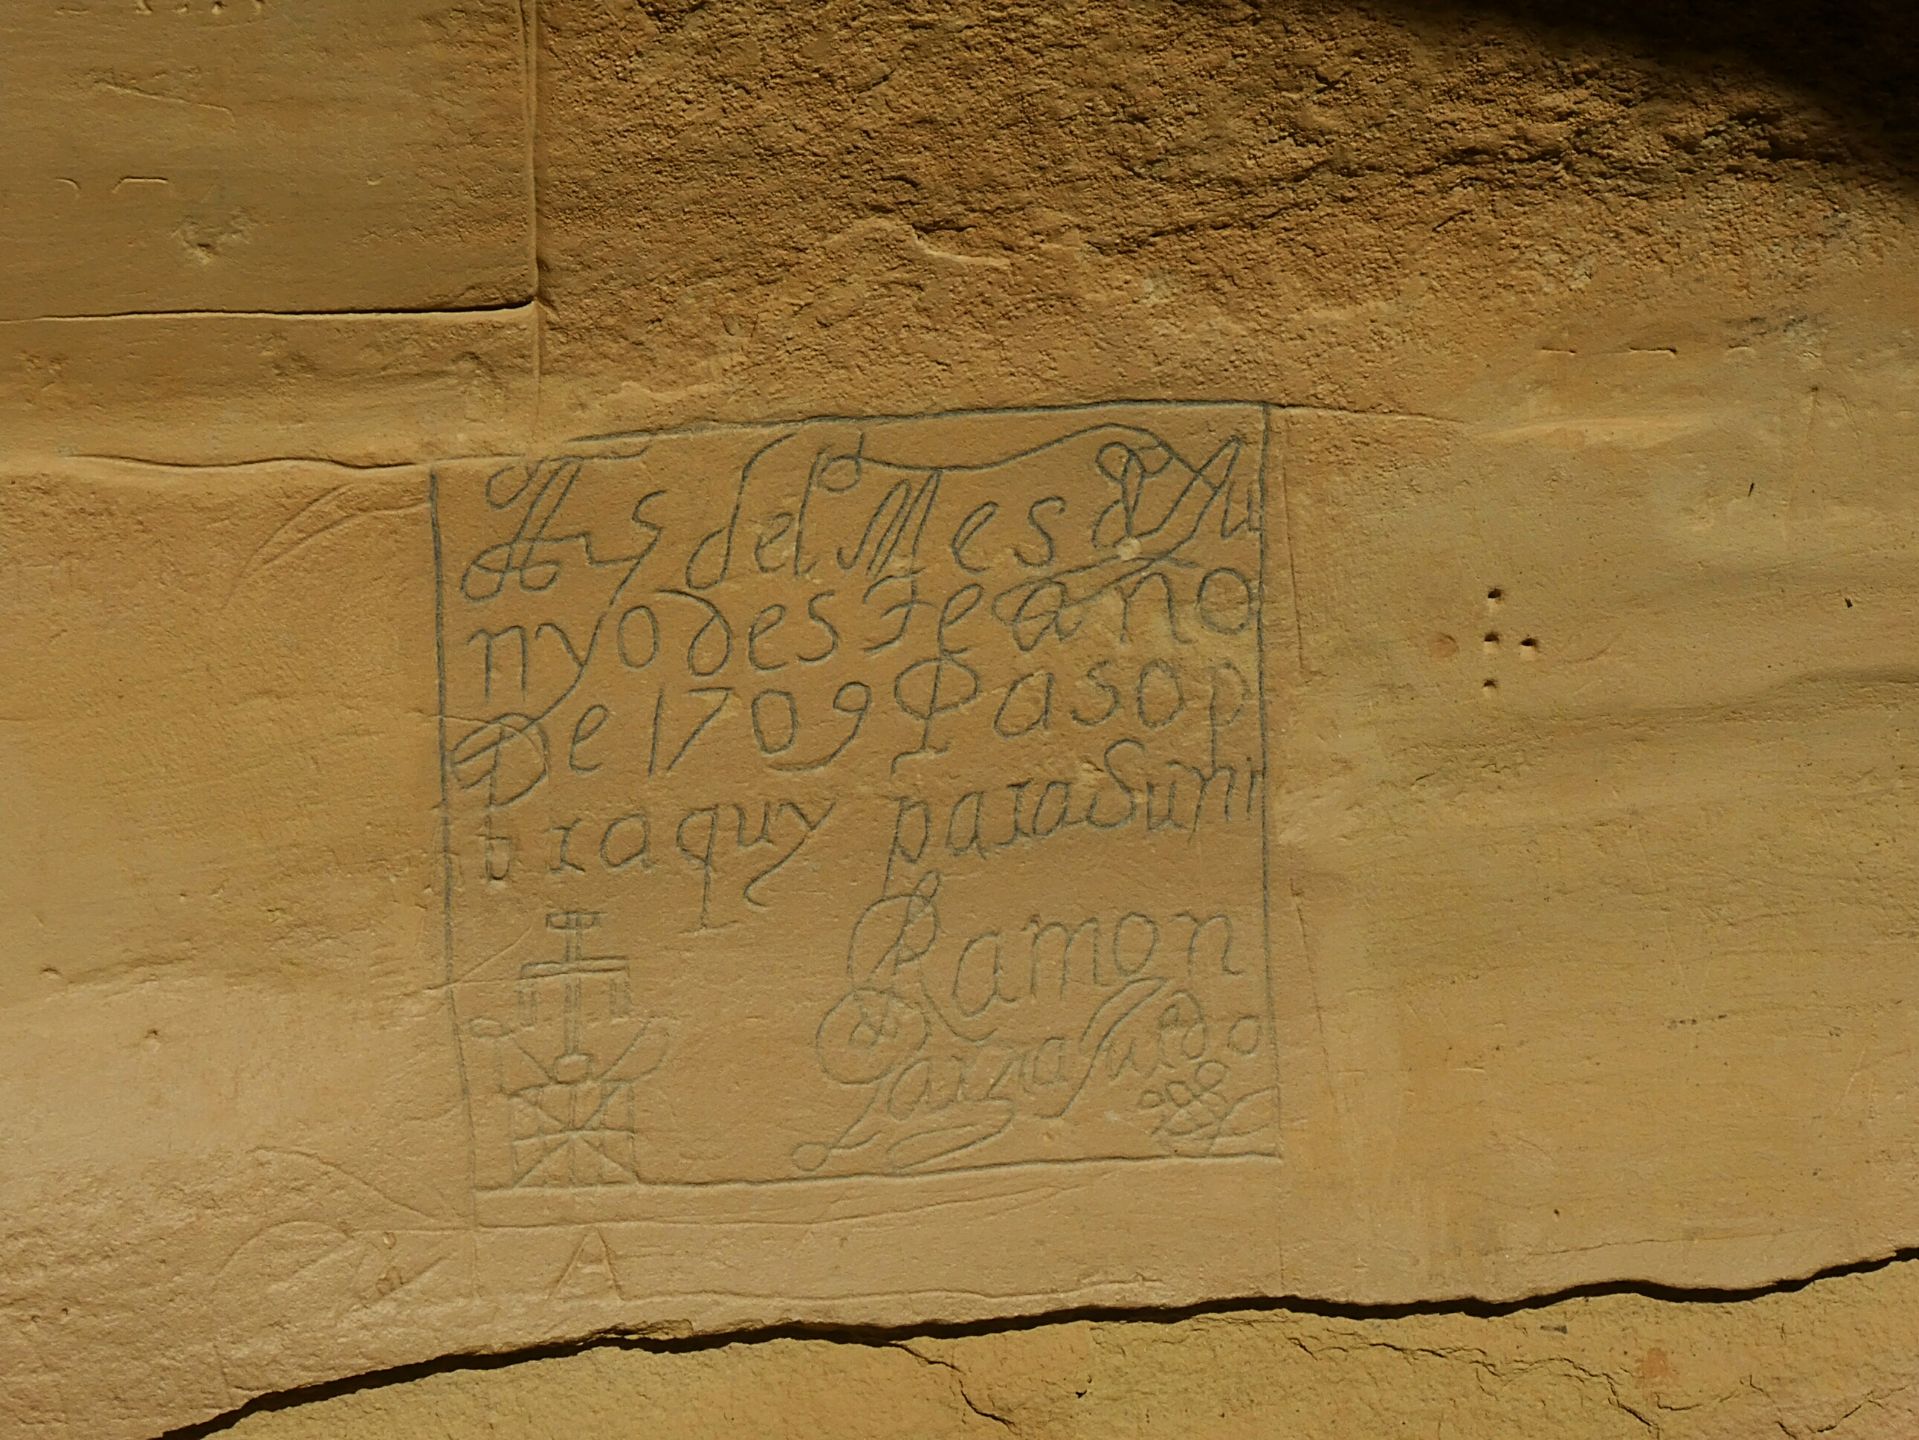 A 5 del Mes d Ju
nyo deste año
De 1709 Paso p
or aquy para Suñi
Ramon
Garza Jurado
A